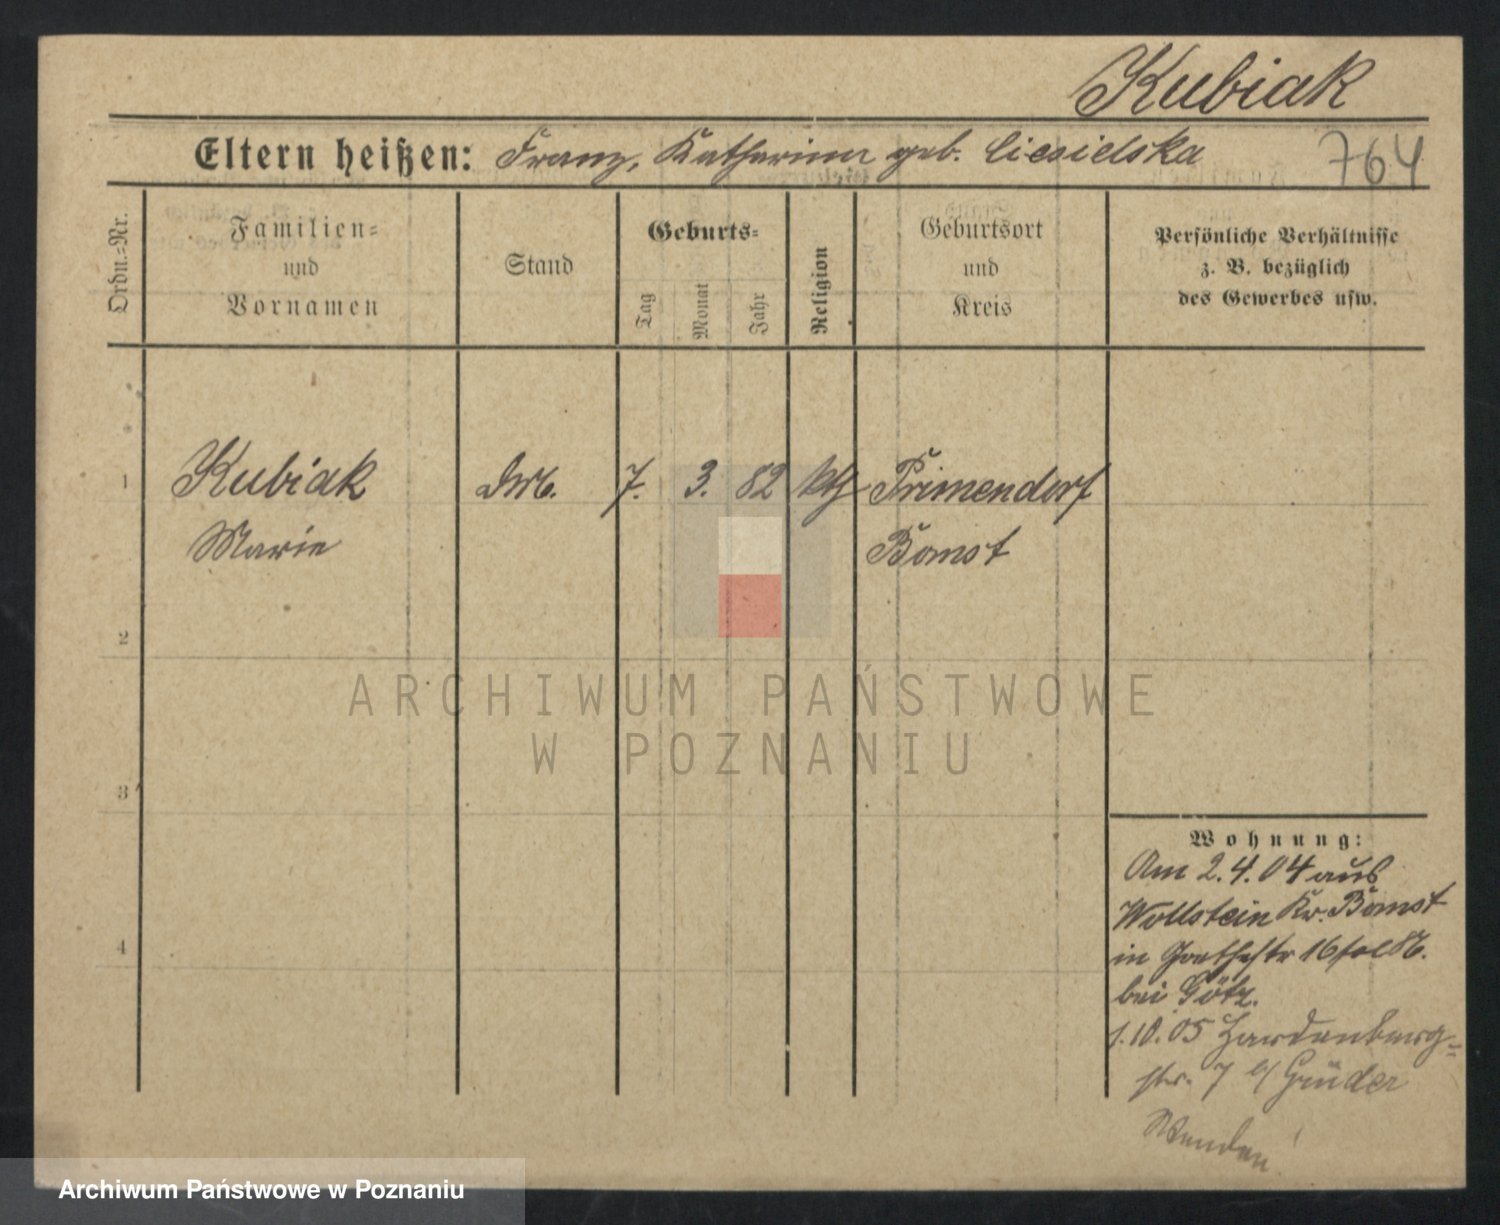 Kubiak
Eltern heißen: Franz, Katharina geb. Ciesielska
764
Ordn.-Nr.
Familien-
und
Vornamen
Stand
Geburts-
Tag
Monat
Jahr
Religion
Geburtsort
und
Kreis
Persönliche Verhältnisse
z. B. bezüglich
des Gewerbes usw.
1
Kubiak
Marie
7. 3. 82 kth
Primendorf
Bomst
2
3
4
Wohnung:
Am 2.4.04 aus
Wollstein Kr. Bomst
in Goethestr 16
bei Götz.
1.10.05 Hardenberg=
str. 7 b/ Grüder
Wenden!
ARCHIWUM PAŃSTWOWE
W POZNANIU
Archiwum Państwowe w Poznaniu